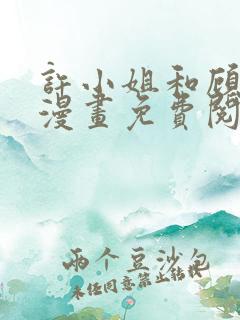 許小姐和顧
漫畫免費閱
兩个豆沙包
未経同意禁止転載